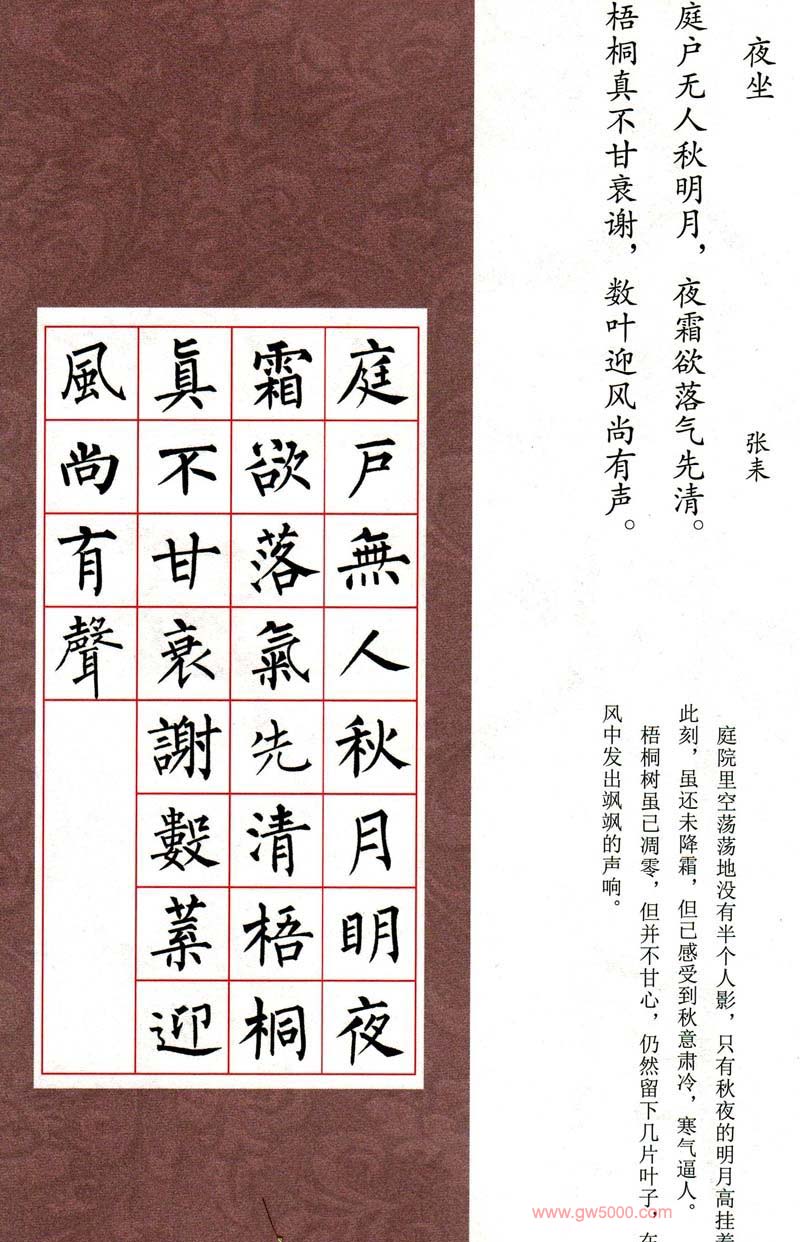 夜坐
张耒
庭户无人秋明月，夜霜欲落气先清。
梧桐真不甘衰谢，数叶迎风尚有声。
庭院里空荡荡地没有半个人影，只有秋夜的明月高挂着
此刻，虽还未降霜，但已感受到秋意肃冷，寒气逼人。
梧桐树虽已凋零，但并不甘心，仍然留下几片叶子，在
风中发出飒飒的声响。
庭戶無人秋月明夜
霜欲落氣先清梧桐
眞不甘衰謝數葉迎
風尚有聲
www.gw5000.com